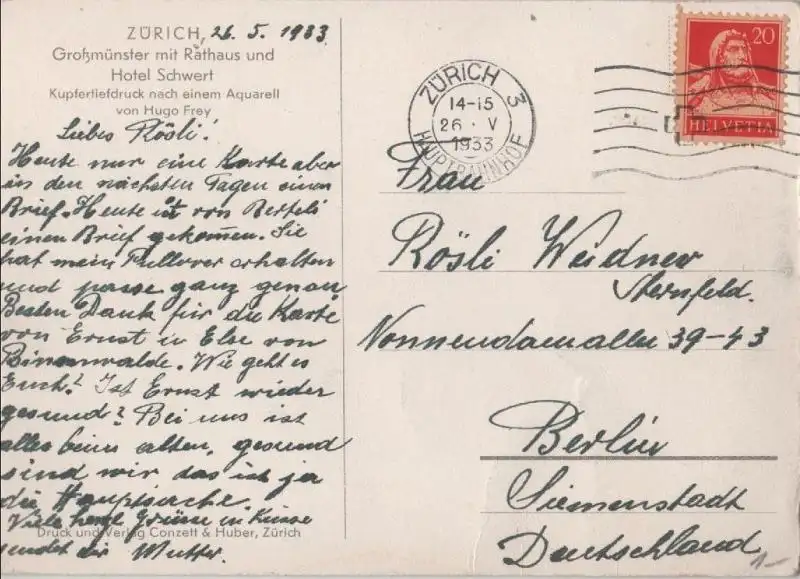 ZÜRICH, 26. 5. 1933
Großmünster mit Rathaus und
Hotel Schwert
Kupfertiefdruck nach einem Aquarell
von Hugo Frey
Liebes Rösli!
Heute nur eine Karte aber
in den nächsten Tagen einen
Brief. Heute ist von Berteli
einen Brief gekommen. Sie
hat mein Pullover erhalten
und passe ganz genau
Besten Dank für die Karte
von Ernst u Else von
Wie geht es
Euch? Ist Ernst wieder
gesund? Bei uns ist
alles beim alten, gesund
sind wir das ist ja
die Hauptsache.
Viele herzl Grüsse u Küsse
Druck und Verlag Conzett & Huber, Zürich
sendet dir Mutter.
ZÜRICH 3
14-15
26. V
1933
HAUPTBAHNHOF
20
HELVETIA
Frau
Rösli Weidner
Sternfeld.
Nonnendamallee 39-43
Berlin
Siemenstadt
Deutschland
1-